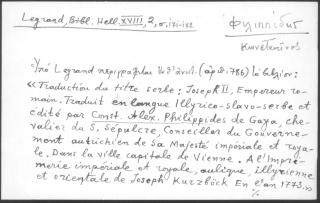 Legrand, Bibl. Hell. XVIII, 2, σ. 151-152
Φιλιππίδης
Κωνσταντῖνος
Ὑπὸ Legrand περιγράφεται (ἀριθ. 786)
« Traduction du titre serbe : Joseph II, Empereur ro-
main. Traduit en langue Illyrico-slavo-serbe et
édité par Const. Alex. Philippides de Gaya, che-
valier du S. Sépulcre, Conseiller du Gouverne-
ment autrichien de Sa Majesté impériale et roya-
le. Dans la ville capitale de Vienne. A l'Impri-
merie impériale et royale, aulique, illyrienne
et orientale de Joseph Kurzböck En l'an 1773. »